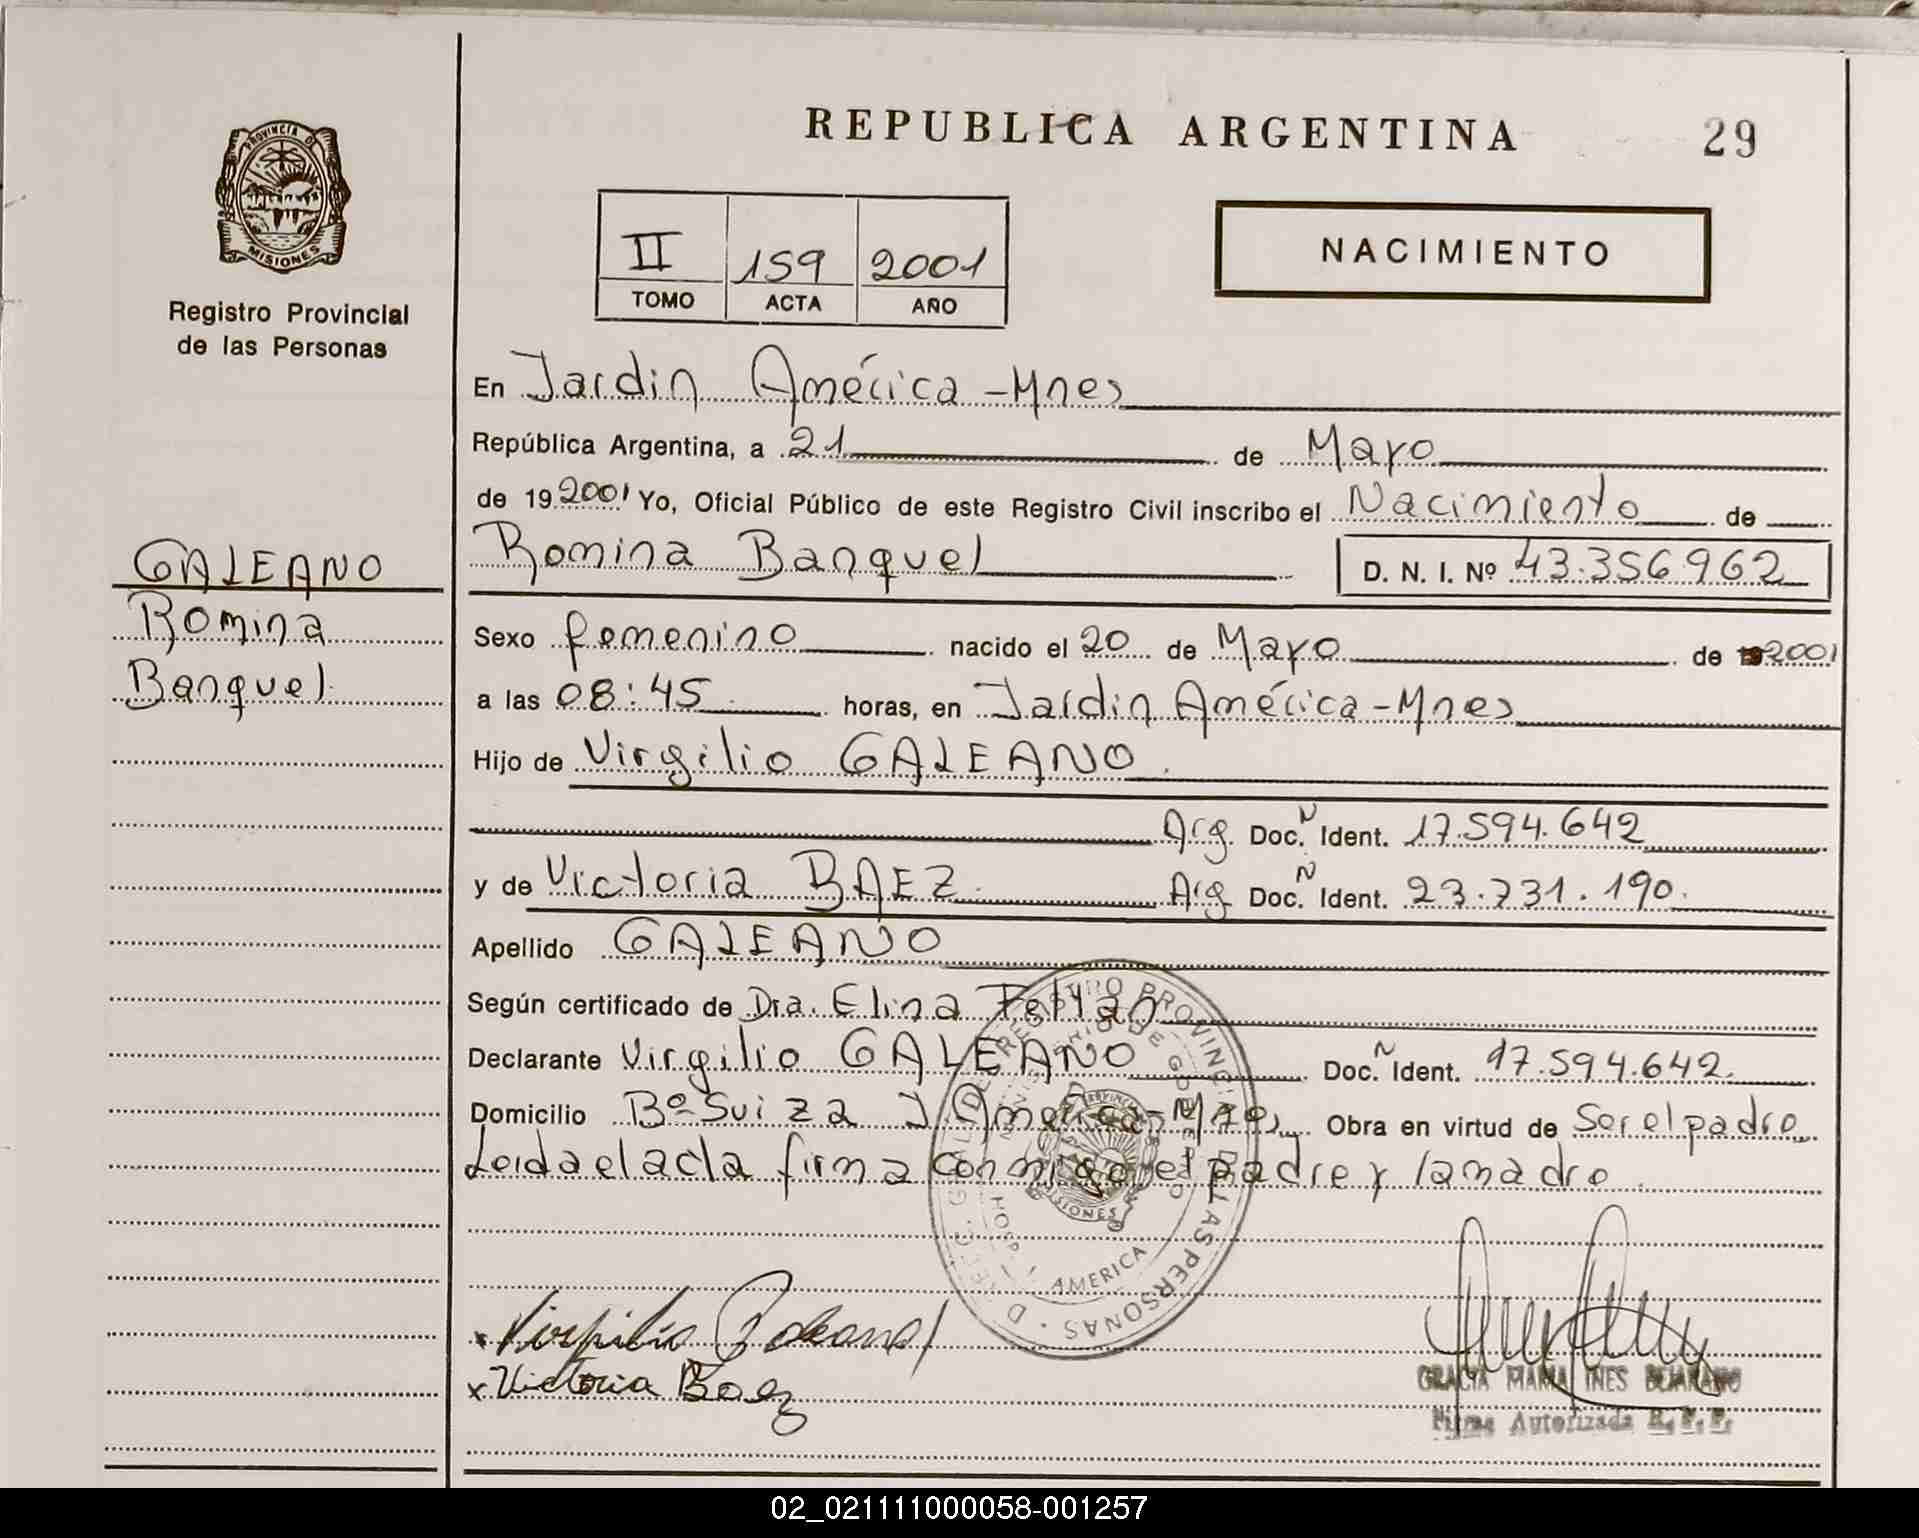 REPUBLICA ARGENTINA
29
PROVINCIA D
MISIONES
Registro Provincial
de las Personas
II 159 2001
TOMO ACTA AÑO
NACIMIENTO
En Jardin América -Mnes
República Argentina, a 21 de Mayo
de 19 2001 Yo, Oficial Público de este Registro Civil inscribo el Nacimiento de
Romina Banquel D. N. I. Nº 43.356962
GALEANO
Romina
Banquel
Sexo femenino nacido el 20 de Mayo de 2001
a las 08:45 horas, en Jardin América -Mnes
Hijo de Virgilio GALEANO
Arg. Doc. N Ident. 17.594.642
y de Victoria BAEZ. Arg Doc. N Ident. 23.731.190.
Apellido GALEANO
Según certificado de Dra. Elina
Declarante Virgilio GALEANO Doc. N Ident. 17.594.642.
Domicilio Bº Suiza J América-Mnes Obra en virtud de Ser el padre
Leida el acta firma conmigo el padre y la madre
REGISTRO PROVINCIAL DE LAS PERSONAS
MINISTERIO DE GOBIERNO
HOSP. J. AMERICA
MISIONES
x Virgilio Galeano
x Victoria Baez
GRACIA MARIA INES BEJARANO
Firma Autorizada R. P. P.
02_021111000058-001257